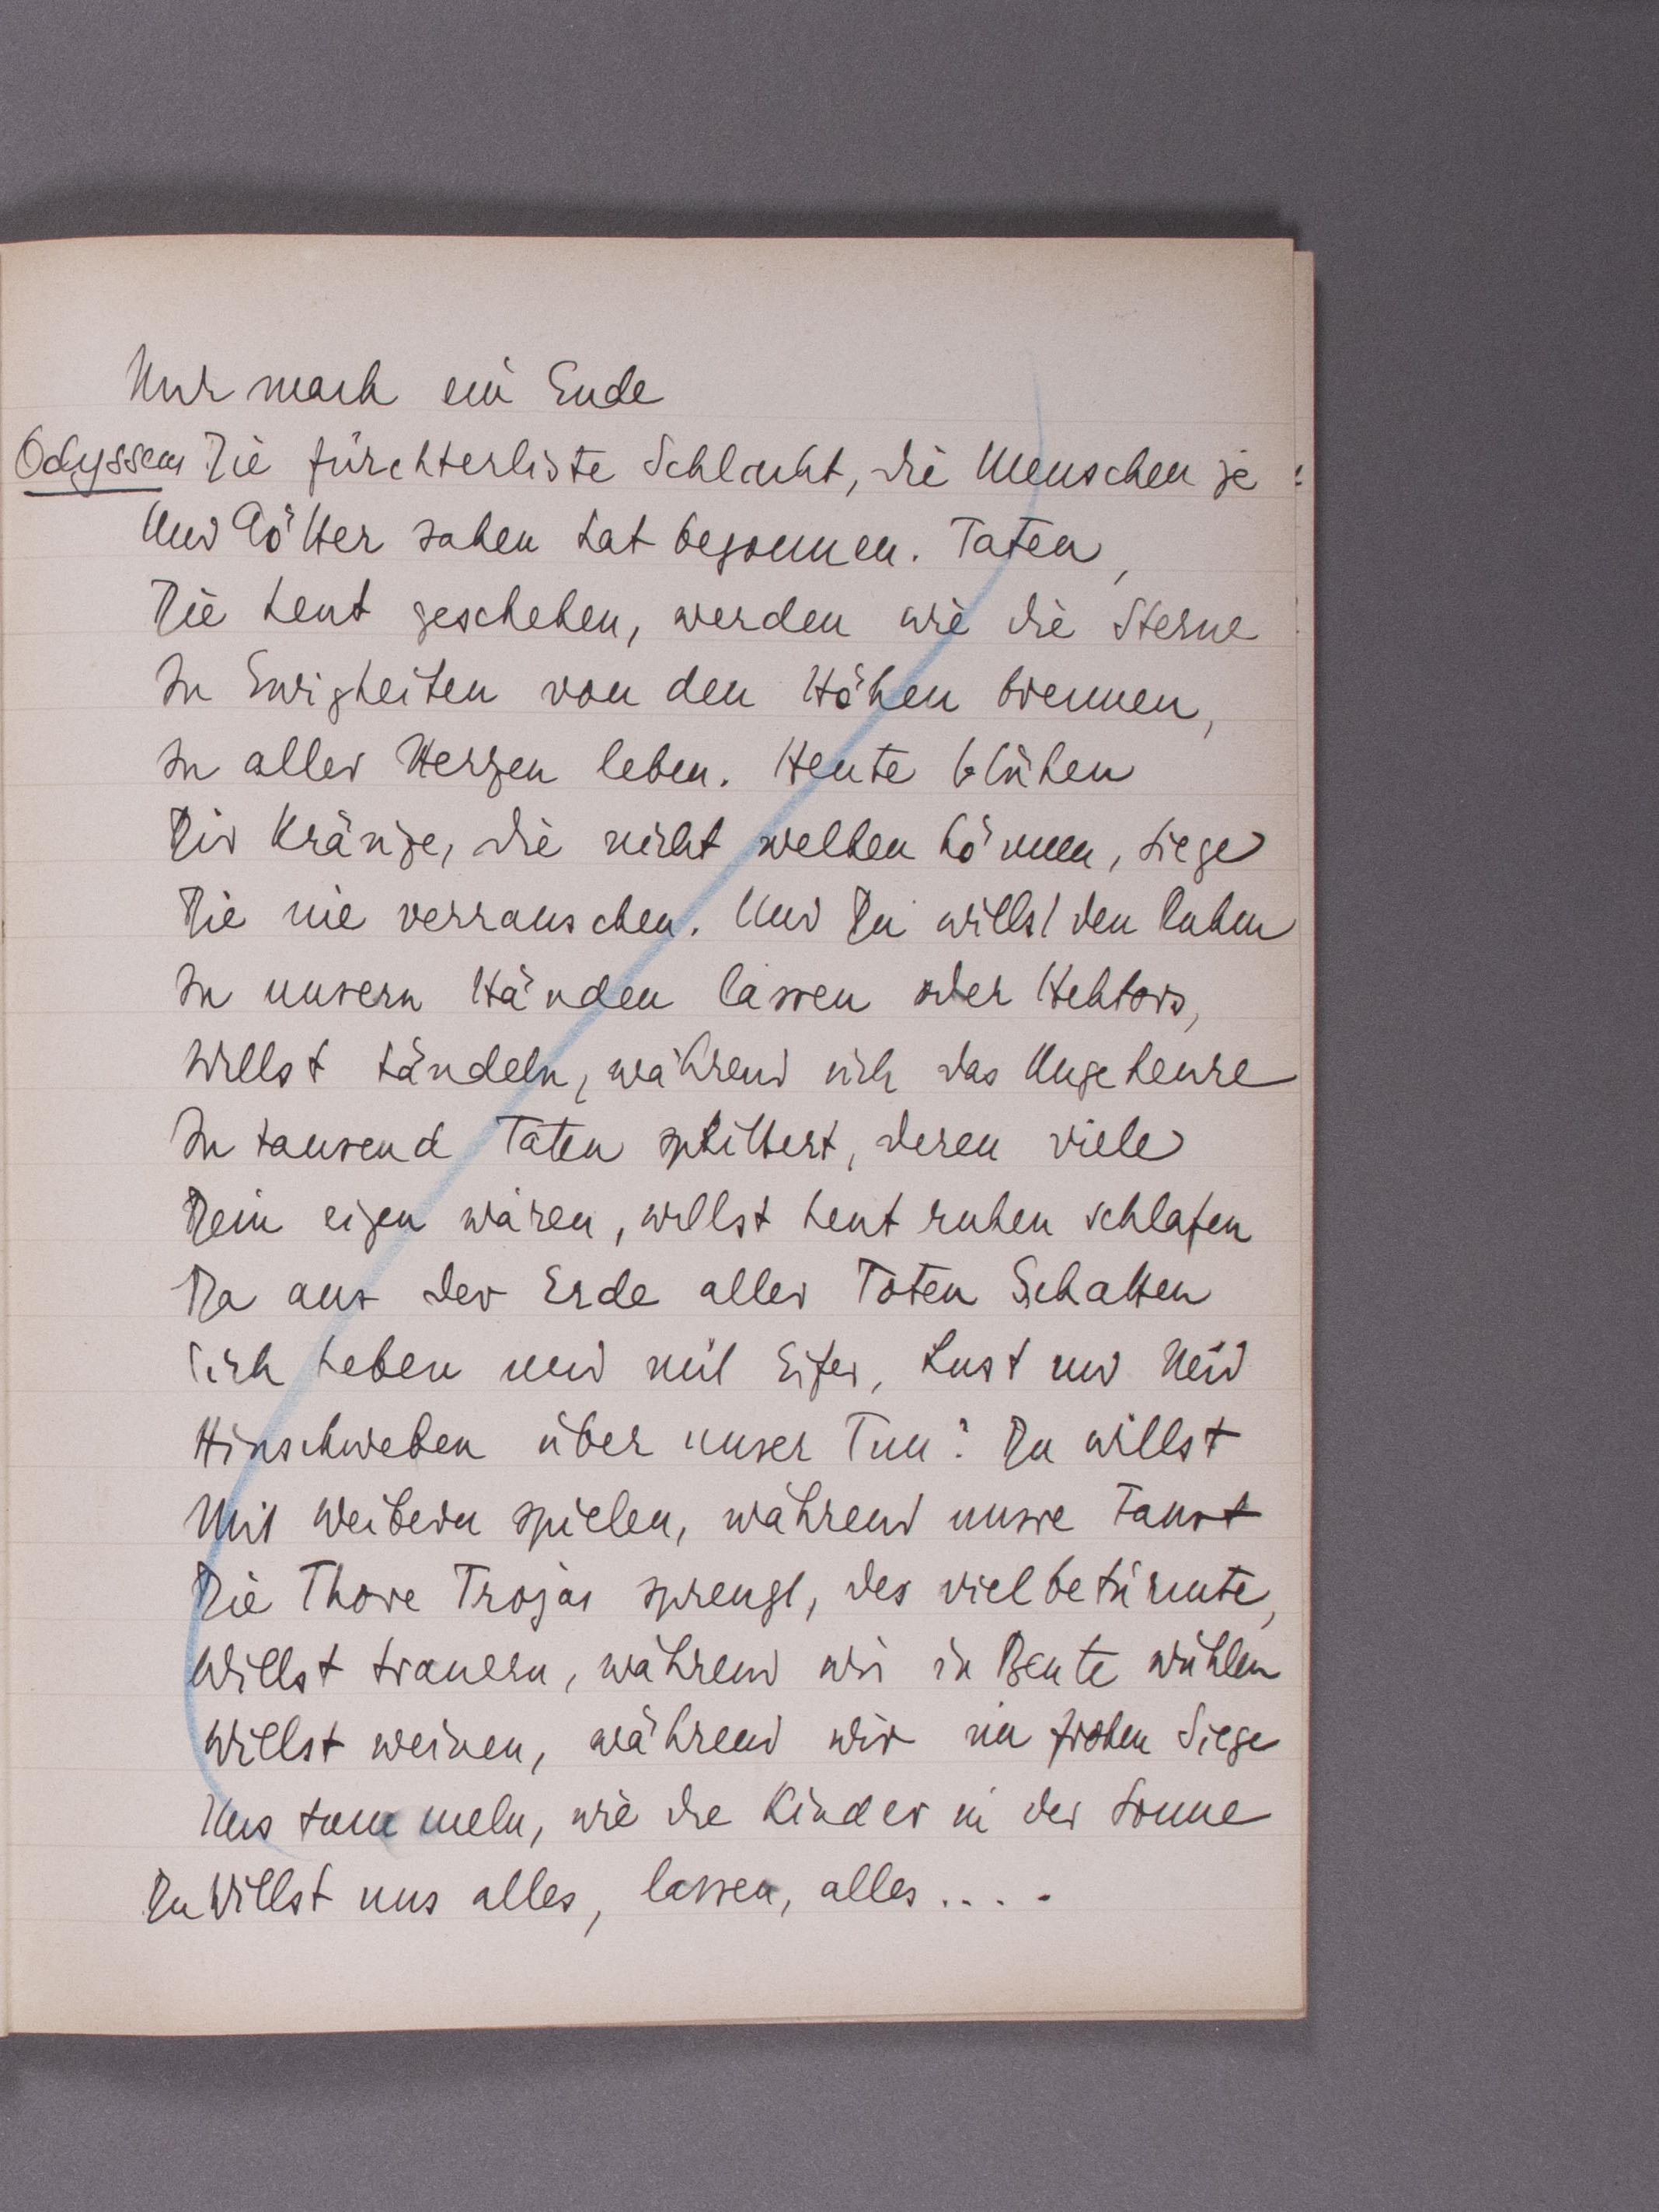 Nur mach ein Ende
Odysseus Die fürchterliste Schlacht, die Menschen je
Und Götter sahen hat begonnen. Taten,
Die heut geschehen, werden wie die Sterne
In Ewigkeiten von den Höhen brennen,
In aller Herzen leben. Heute blühen
Dir Kränze, die nicht welken können, Siege
Die nie verrauschen. Und Du willst den Ruhm
In unsern Händen lassen oder Hektors,
Willst tändeln, während sich das Ungeheure
In tausend Taten splittert, deren viele
Dein eigen wären, willst heut ruhen schlafen
Da aus der Erde aller Toten Schatten
Sich heben und mit Eifer, Lust und Neid
Hinschweben über unser Tun? Du willst
Mit Weibern spielen, während unsre Faust
Die Thore Trojas sprengt, des vielbetürmte,
Willst trauern, während wir in Beute wühlen
Willst weinen, während wir im frohen Siege
Uns tummeln, wie die Kinder in der Sonne
Du Willst uns alles, lassen, alles ....